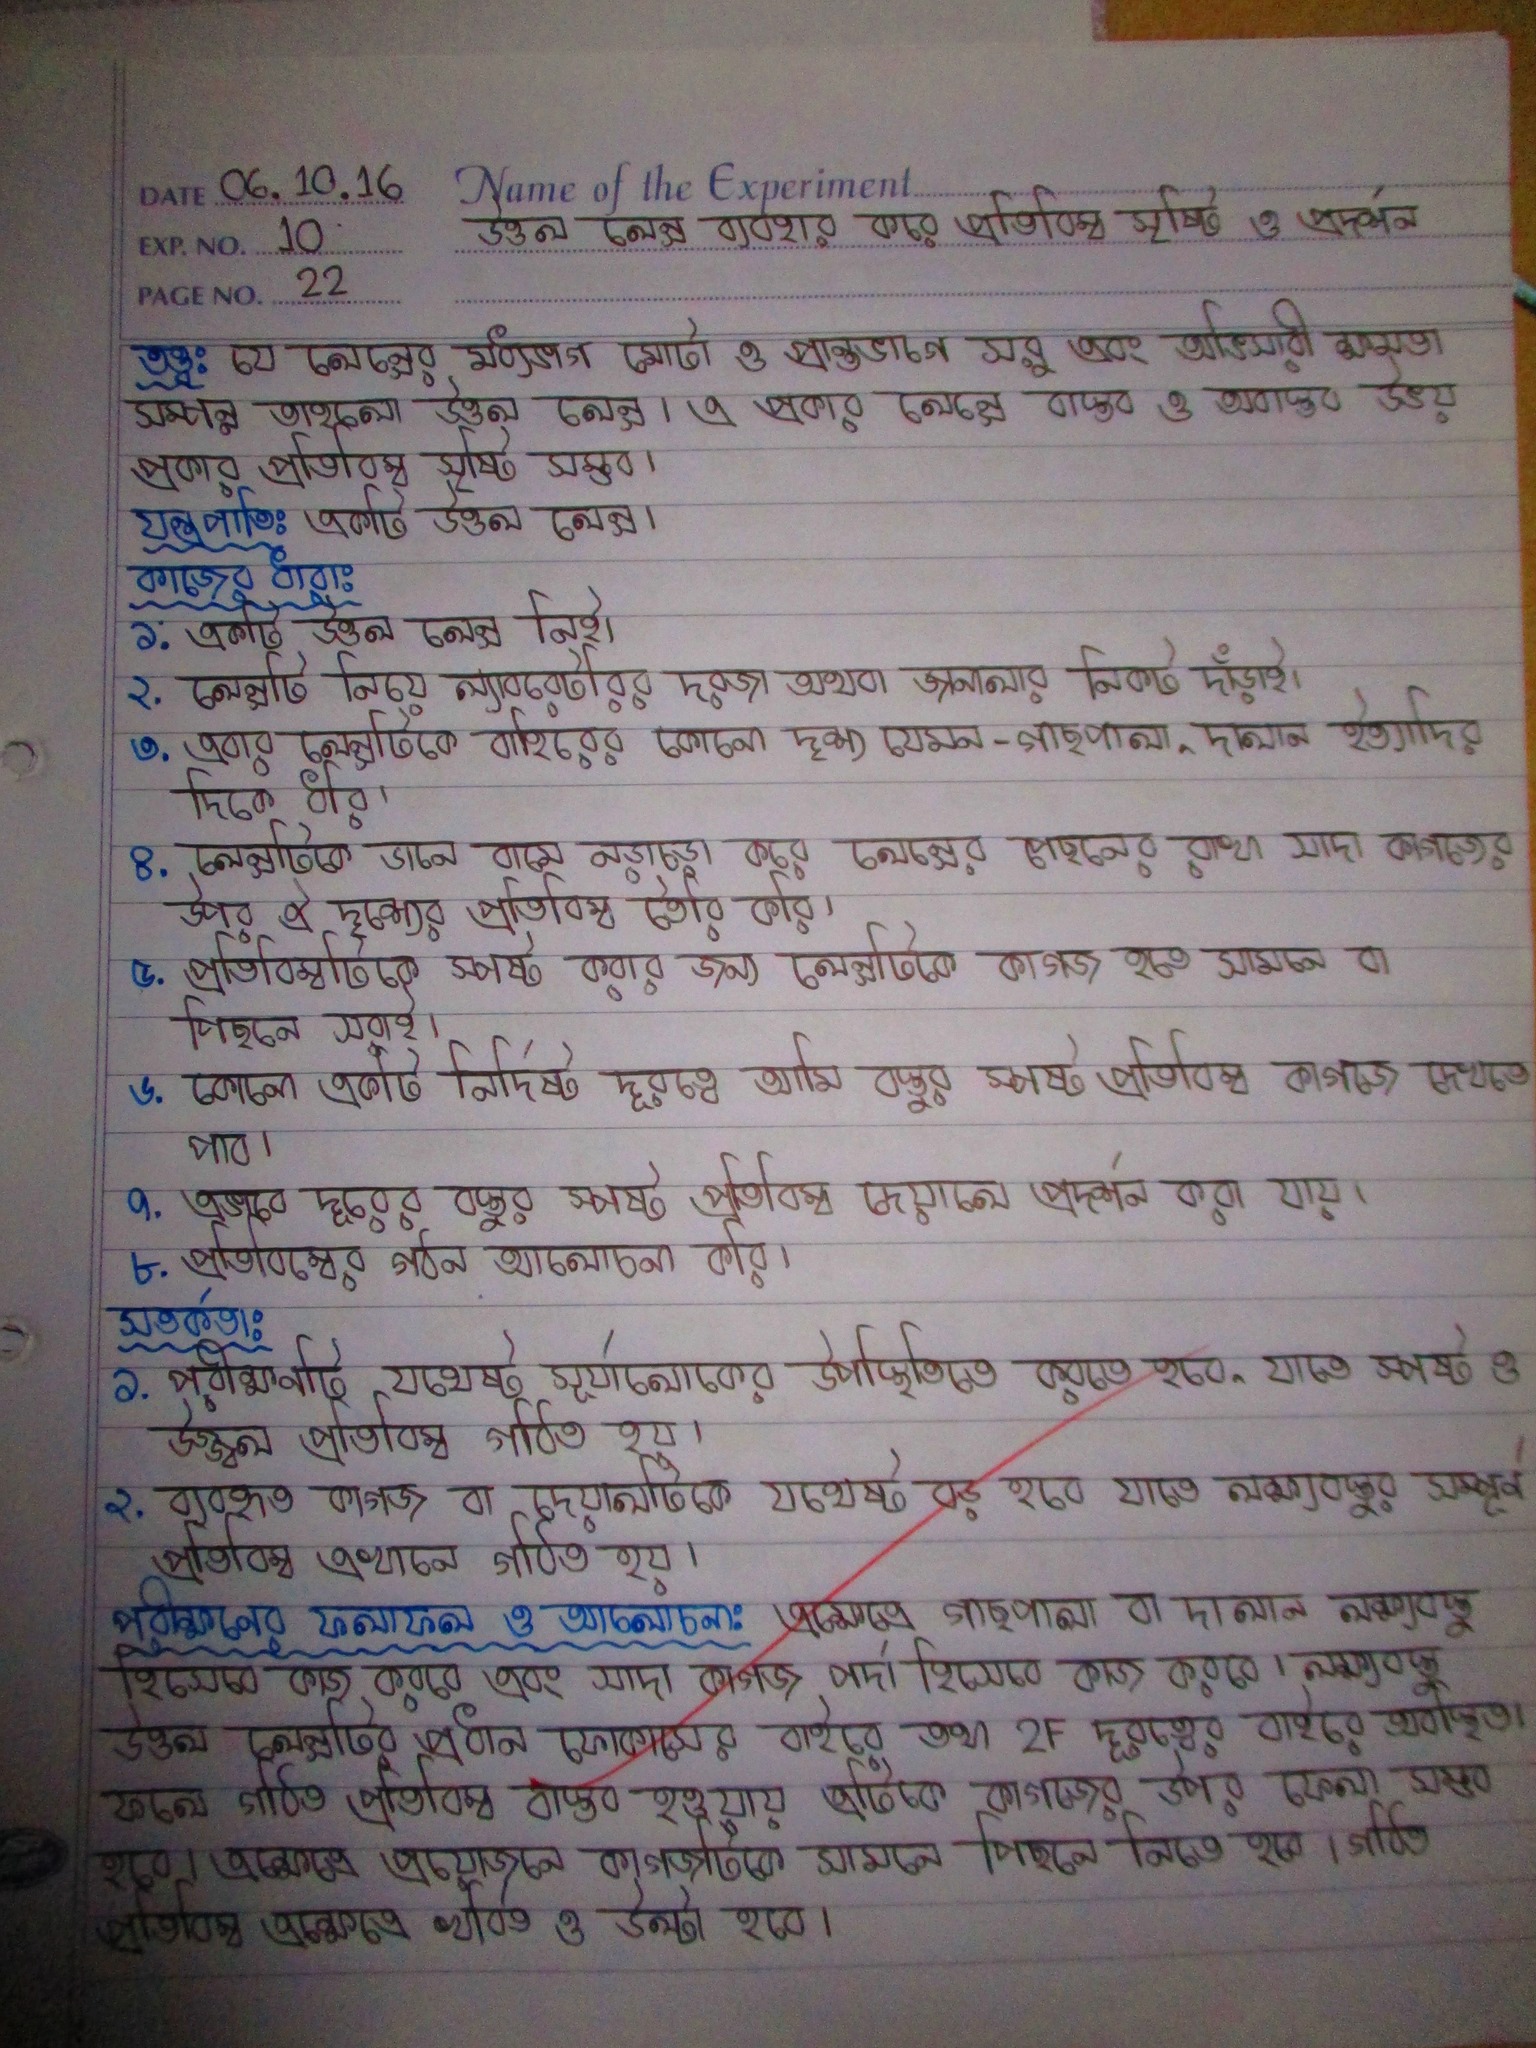 DATE 06.10.16 Name of the Experiment
EXP. NO. 10 উত্তল লেন্স ব্যবহার করে প্রতিবিম্ব সৃষ্টি ও প্রদর্শন
PAGE NO. 22
তত্ত্বঃ যে লেন্সের মধ্যভাগ মোটা ও প্রান্তভাগে সরু এবং অভিসারী ক্ষমতা
সম্পন্ন তাহলো উত্তল লেন্স। এ প্রকার লেন্সে বাস্তব ও অবাস্তব উভয়
প্রকার প্রতিবিম্ব সৃষ্টি সম্ভব।
যন্ত্রপাতিঃ একটি উত্তল লেন্স।
কাজের ধারাঃ
১. একটি উত্তল লেন্স নিই।
২. লেন্সটি নিয়ে ল্যাবরেটরির দরজা অথবা জানালার নিকট দাঁড়াই।
৩. এবার লেন্সটিকে বাহিরের কোনো দৃশ্য যেমন-গাছপালা, দালান ইত্যাদির
দিকে ধরি।
৪. লেন্সটিকে ডানে বামে নড়াচড়া করে লেন্সের পেছনের রাখা সাদা কাগজের
উপর ঐ দৃশ্যের প্রতিবিম্ব তৈরি করি।
৫. প্রতিবিম্বটিকে স্পষ্ট করার জন্য লেন্সটিকে কাগজ হতে সামনে বা
পিছনে সরাই।
৬. কোনো একটি নির্দিষ্ট দূরত্বে আমি বস্তুর স্পষ্ট প্রতিবিম্ব কাগজে দেখতে
পাব।
৭. এভাবে দূরের বস্তুর স্পষ্ট প্রতিবিম্ব দেয়ালে প্রদর্শন করা যায়।
৮. প্রতিবিম্বের গঠন আলোচনা করি।
সতর্কতাঃ
১. পরীক্ষণটি যথেষ্ট সূর্যালোকের উপস্থিতিতে করতে হবে, যাতে স্পষ্ট ও
উজ্জ্বল প্রতিবিম্ব গঠিত হয়।
২. ব্যবহৃত কাগজ বা দেয়ালটিকে যথেষ্ট বড় হবে যাতে লক্ষ্যবস্তুর সম্পূর্ন
প্রতিবিম্ব এখানে গঠিত হয়।
পরীক্ষণের ফলাফল ও আলোচনাঃ এক্ষেত্রে গাছপালা বা দালান লক্ষ্যবস্তু
হিসেবে কাজ করবে এবং সাদা কাগজ পর্দা হিসেবে কাজ করবে। লক্ষ্যবস্তু
উত্তল লেন্সটির প্রধান ফোকাসের বাইরে তথা 2F দূরত্বের বাইরে অবস্থিত।
ফলে গঠিত প্রতিবিম্ব বাস্তব হওয়ায় এটিকে কাগজের উপর ফেলা সম্ভব
হবে। এক্ষেত্রে প্রয়োজনে কাগজটিকে সামনে পিছনে নিতে হবে। গঠিত
প্রতিবিম্ব এক্ষেত্রে খর্বিত ও উল্টা হবে।